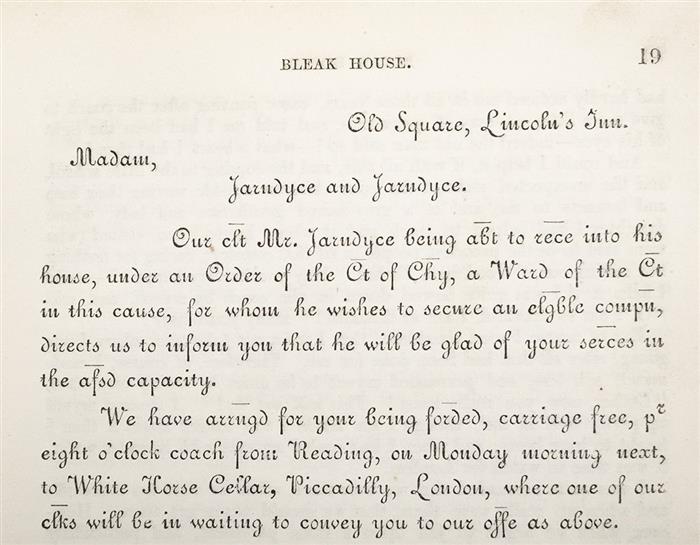 BLEAK HOUSE. 19
Old Square, Lincoln's Inn.
Madam,
Jarndyce and Jarndyce.
Our clt Mr. Jarndyce being abt to rece into his
house, under an Order of the Ct of Chy, a Ward of the Ct
in this cause, for whom he wishes to secure an elgble compn,
directs us to inform you that he will be glad of your serces in
the afsd capacity.
We have arrngd for your being forded, carriage free, pr
eight o'clock coach from Reading, on Monday morning next,
to White Horse Cellar, Piccadilly, London, where one of our
clks will be in waiting to convey you to our offe as above.